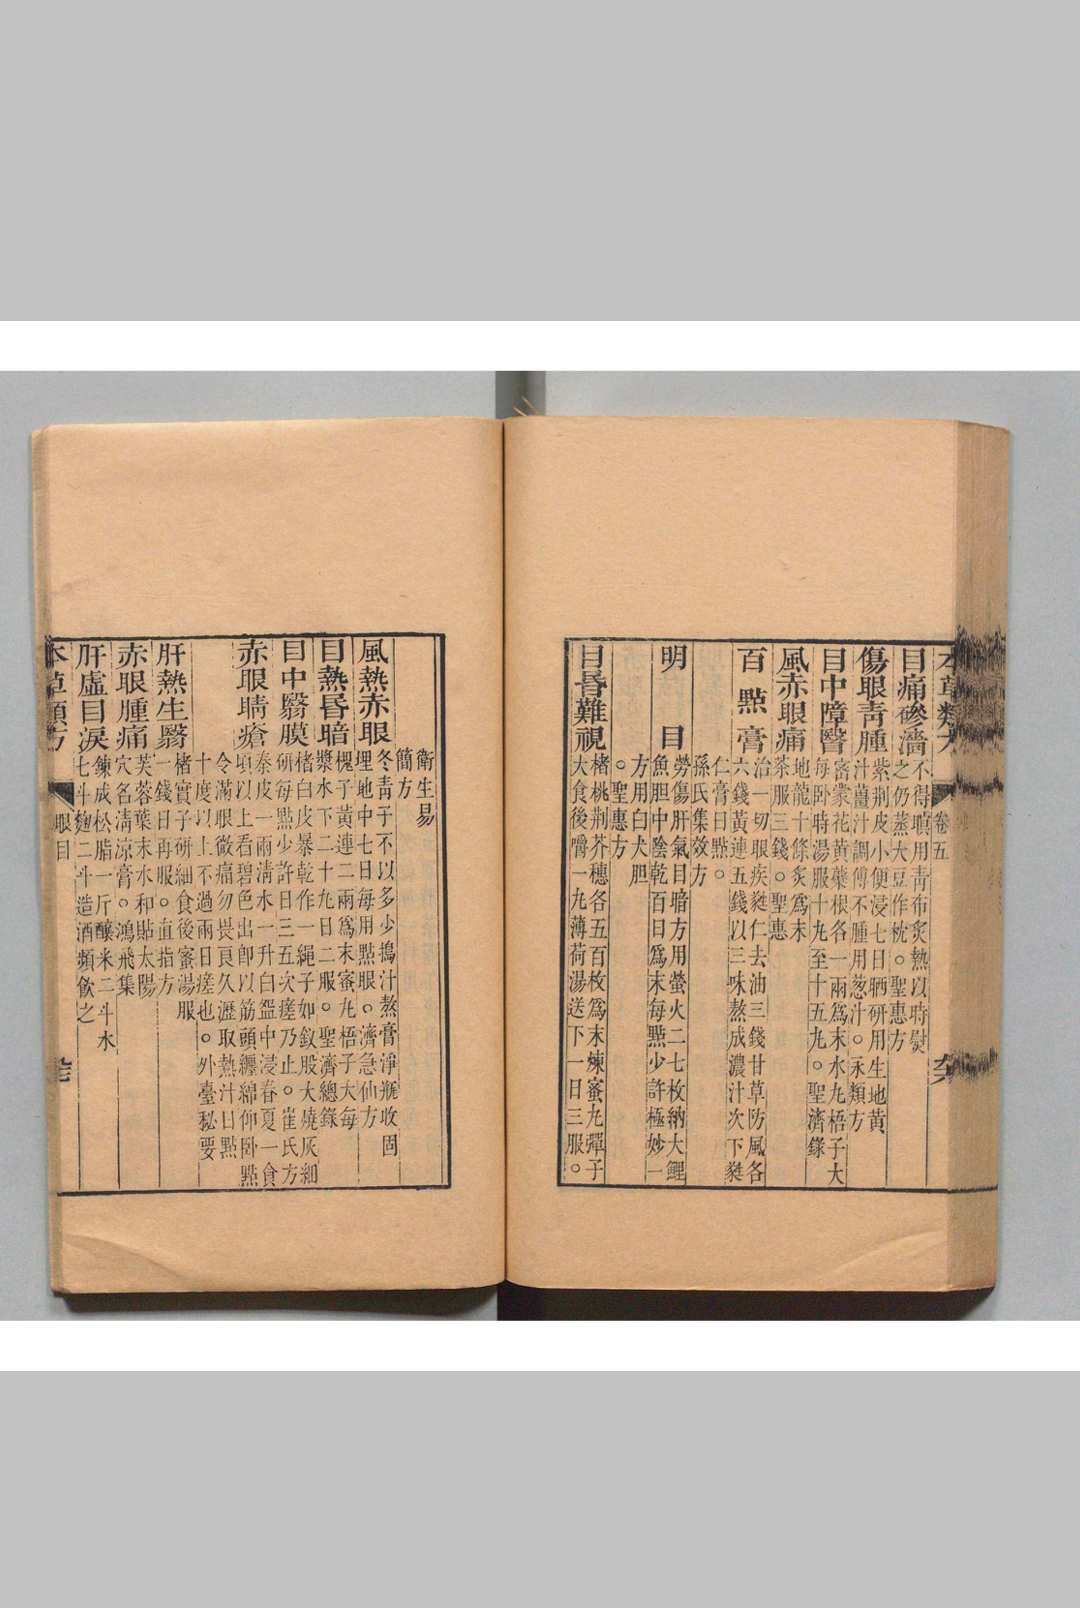 本草類方
卷五
目痛磣濇
不得瞋用青布炙熱以時熨
之仍蒸大豆作枕。聖惠方
傷眼青腫
紫荆皮小便浸七日晒研用生地黄
汁薑汁調傅不腫用葱汁。永類方
目中障翳
密蒙花黄蘗根各一兩爲末水丸梧子大
每卧時湯服十丸至十五丸。聖濟錄
風赤眼痛
地龍十條炙爲末
茶服三錢。聖惠
百點膏
治一切眼疾蕤仁去油三錢甘草防風各
六錢黄連五錢以三味熬成濃汁次下蕤
仁膏日點。
孫氏集效方
明目
勞傷肝氣目暗方用螢火二七枚納大鯉
魚胆中陰乾百日爲末每點少許極妙一
方用白犬胆
。聖惠方
目昬難視
楮桃荆芥穗各五百枚爲末煉蜜丸彈子
大食後嚼一丸薄荷湯送下一日三服。
衛生易
簡方
風熱赤眼
冬青子不以多少搗汁熬膏淨瓶收固
埋地中七日每用點眼。濟急仙方
目熱昬暗
槐子黄連二兩爲末蜜丸梧子大每
漿水下二十丸日二服。聖濟總錄
目中翳膜
楮白皮暴乾作一繩子如釵股大燒灰細
研每點少許日三五次瘥乃止。崔氏方
赤眼睛瘡
秦皮一兩清水一升白盌中浸春夏一食
頃以上看碧色出卽以筯頭纏綿仰卧點
令滿眼微痛勿畏良久瀝取熱汁日點
十度以上不過兩日瘥也。外臺秘要
肝熱生翳
楮實子研細食後蜜湯服
一錢日再服。直指方
赤眼腫痛
芙蓉葉末水和貼太陽
穴名清涼膏。鴻飛集
肝虛目淚
鍊成松脂一斤釀米二斗水
七斗麴二斗造酒頻飲之
本草類方
眼目